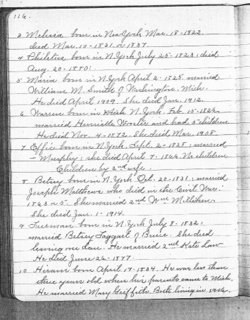 116.
3 Melissa born in New York Mar. 18-1822
died Mar. 10-1851
4 Philetus born in N.York July 25-1823; died
Aug. 20-
5 Maria born in N.York April 2-1825- married
William M. Smith of Washington, Mich.
He died April 1909. She died Jan. 1912.
6 Warren born in N.York Feb. 15-
married Henrietta had 3 children
He died Nov. 4-1892. She died Mar. 1908.
7 born in N.York, Sept. 2- married
Murphy; she died April 7-1862. No children
Children by 2nd wife.
8 Betsey born in N.York Oct. 20-1831; married
Joseph Matthews who died in the Civil War-
1862-5- She married 2nd Wm. McMahon
She died Jan. 1-1914.
9 Freeman born in N.York July 8-1832-
married Betsey Taggart of Bruce She died
leaving one son. He married 2nd Kate Law
He died June 22-1897
10 Hiram born April 17-1834. He was less than
three years old when his parents came to Mich.
He married Mary living in 1906.